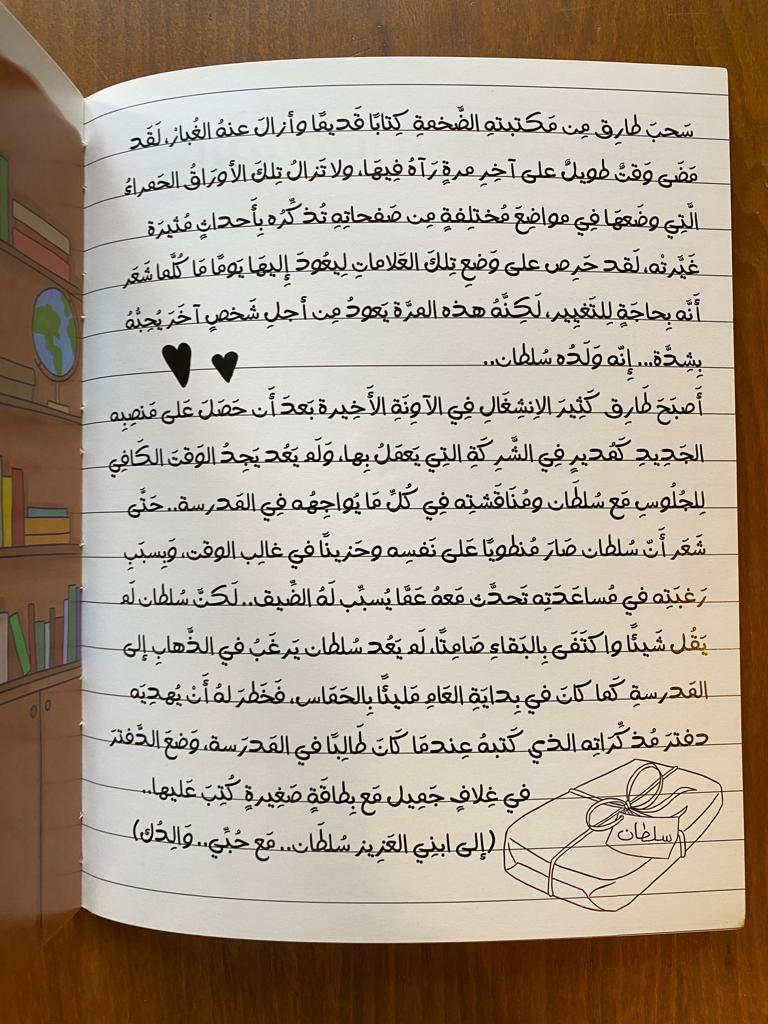 سَحبَ طارق مِن مَكتبتهِ الضَّخمةِ كِتابًا قَديمًا وأزالَ عنهُ الغُبارْ، لَقَد
مَضَى وَقتٌ طويلٌ على آخِرِ مرةٍ رَآهُ فِيهَا، ولا تَزالُ تِلكَ الأورَاقُ الحَمراءُ
الَّتِي وضَعهَا فِي مواضِعَ مُختلِفةٍ مِن صَفحاتِهِ تُذكِّرُه بِأَحداثٍ مُثيرَة
غَيَّرته، لَقد حَرِص على وَضعِ تِلكَ العَلاماتِ لِيعُودَ إِليهَا يَومًا مَا كُلَّما شَعَر
أَنَّه بِحاجَةٍ لِلتَغيِير، لَكِنَّهُ هذه المرَّة يَعودُ مِن أجلِ شَخصٍ آخَرَ يُحِبُّهُ
بِشِدَّة... إِنّه وَلَدُه سُلطان..
أَصبَحَ طَارِق كَثِيرَ الاِنشِغَالِ فِي الآوِنَةِ الأَخِيرة بَعدَ أَن حَصَلَ عَلى مَنصِبِه
الجَدِيدِ كَمُديرٍ في الشَّرِكَةِ التِي يَعمَلُ بِها، وَلَم يَعُد يَجِدُ الوَقتَ الكَافِي
لِلجُلُوسِ مَع سُلطَان ومُنَاقَشتِه فِي كُلِّ مَا يُواجِهُه فِي المَدرسة.. حَتَّى
شَعَر أَنّ سُلطان صَارَ مُنطويًا عَلى نَفسِه وحَزينًا في غالِب الوقت، وَبِسبَبِ
رَغبَتِه في مُساعَدَتِه تَحدَّث مَعهُ عَمَّا يُسبِّب لَهُ الضِّيف.. لَكنَّ سُلطان لَم
يَقُل شَيئًا واكتَفَى بِالبَقاءِ صَامِتًا، لَم يَعُد سُلطان يَرغَبُ في الذَّهابِ إِلى
المَدرسةِ كَما كانَ في بِدايَةِ العَامِ مَليئًا بِالحَمَاس، فَخَطَرَ لهُ أَنْ يُهدِيَه
دفترَ مُذكِّرَاتِه الذي كَتبهُ عِندمَا كَانَ طَالِبًا في المَدرَسة، وَضعَ الدَّفترَ
في غِلافٍ جَمِيل مَع بِطاقَةٍ صَغِيرةٍ كُتِبَ عَليها..
(إلى ابنِي العَزِيز سُلطَان.. مَع حُبِّي.. وَالِدُك)
سلطان